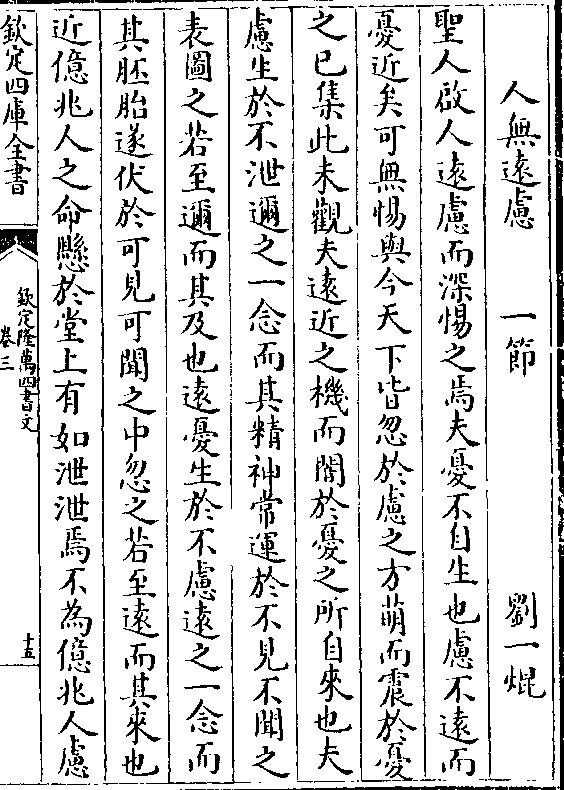 人無遠慮　一節　劉一焜
聖人啟人遠慮而深惕之焉夫憂不自生也慮不遠而
憂近矣可無惕與今天下皆忽於慮之方萌而震於憂
之已集此未觀夫遠近之機而闇於憂之所自來也夫
慮生於不泄邇之一念而其精神常運於不見不聞之
表圖之若至邇而其及也遠憂生於不慮遠之一念而
其胚胎遂伏於可見可聞之中忽之若至遠而其來也
近億兆人之命懸於堂上有如泄泄焉不為億兆人慮
欽定四庫全書
欽定隆萬四書文
卷三
十五